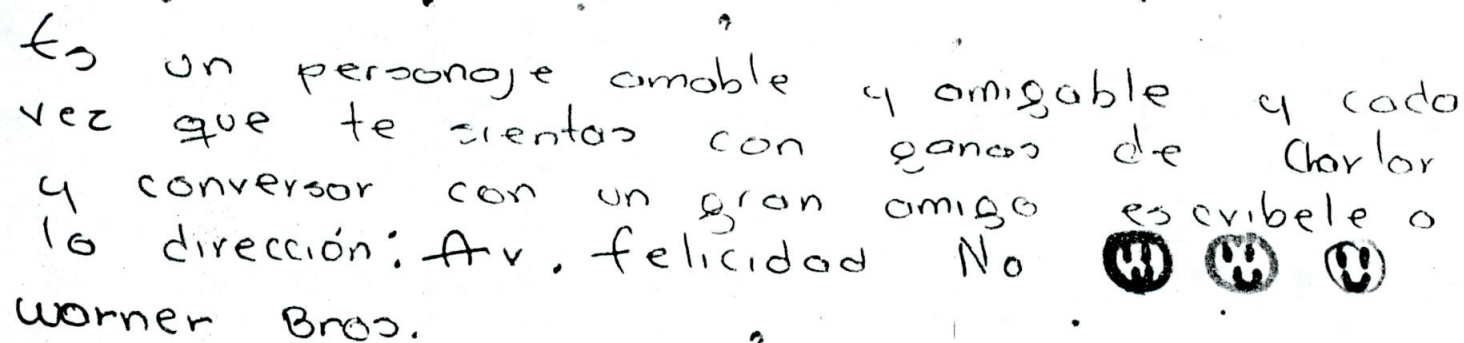 Es un personaje amable y amigable y cada
vez que te sientas con ganas de Charlar
y conversar con un gran amigo escribele a
la dirección: Av. felicidad No
Warner Bros.